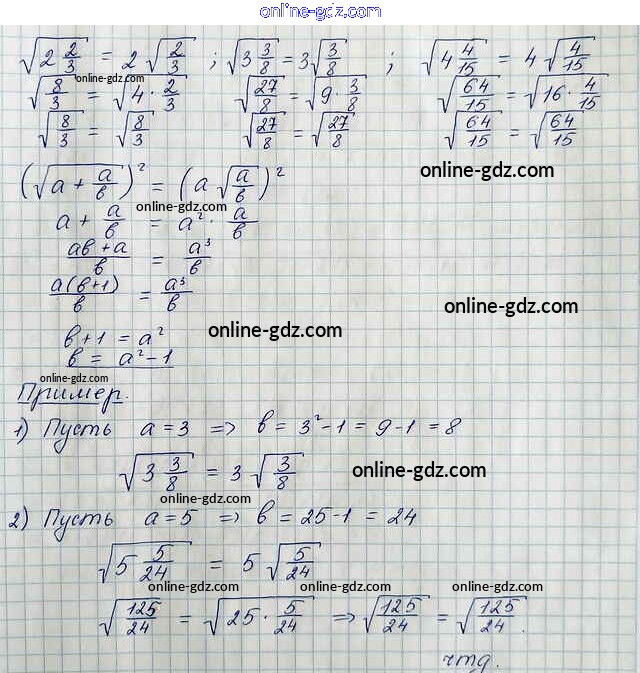 online-gdz.com
√(2 2/3) = 2 √(2/3) ; √(3 3/8) = 3 √(3/8) ; √(4 4/15) = 4 √(4/15)
online-gdz.com
√(8/3) = √(4 · 2/3) √(27/8) = √(9 · 3/8) √(64/15) = √(16 · 4/15)
√(8/3) = √(8/3) √(27/8) = √(27/8) √(64/15) = √(64/15)
online-gdz.com
(√(a + a/b))² = (a √(a/b))²
online-gdz.com
a + a/b = a² · a/b
(ab + a)/b = a³/b
a(b+1)/b = a³/b
online-gdz.com
online-gdz.com
b + 1 = a²
b = a² − 1
online-gdz.com
Пример.
1) Пусть a = 3 ⇒ b = 3² − 1 = 9 − 1 = 8
√(3 3/8) = 3 √(3/8)
online-gdz.com
online-gdz.com
2) Пусть a = 5 ⇒ b = 25 − 1 = 24
√(5 5/24) = 5 √(5/24)
online-gdz.com online-gdz.com online-gdz.com
√(125/24) = √(25 · 5/24) ⇒ √(125/24) = √(125/24).
чтд.